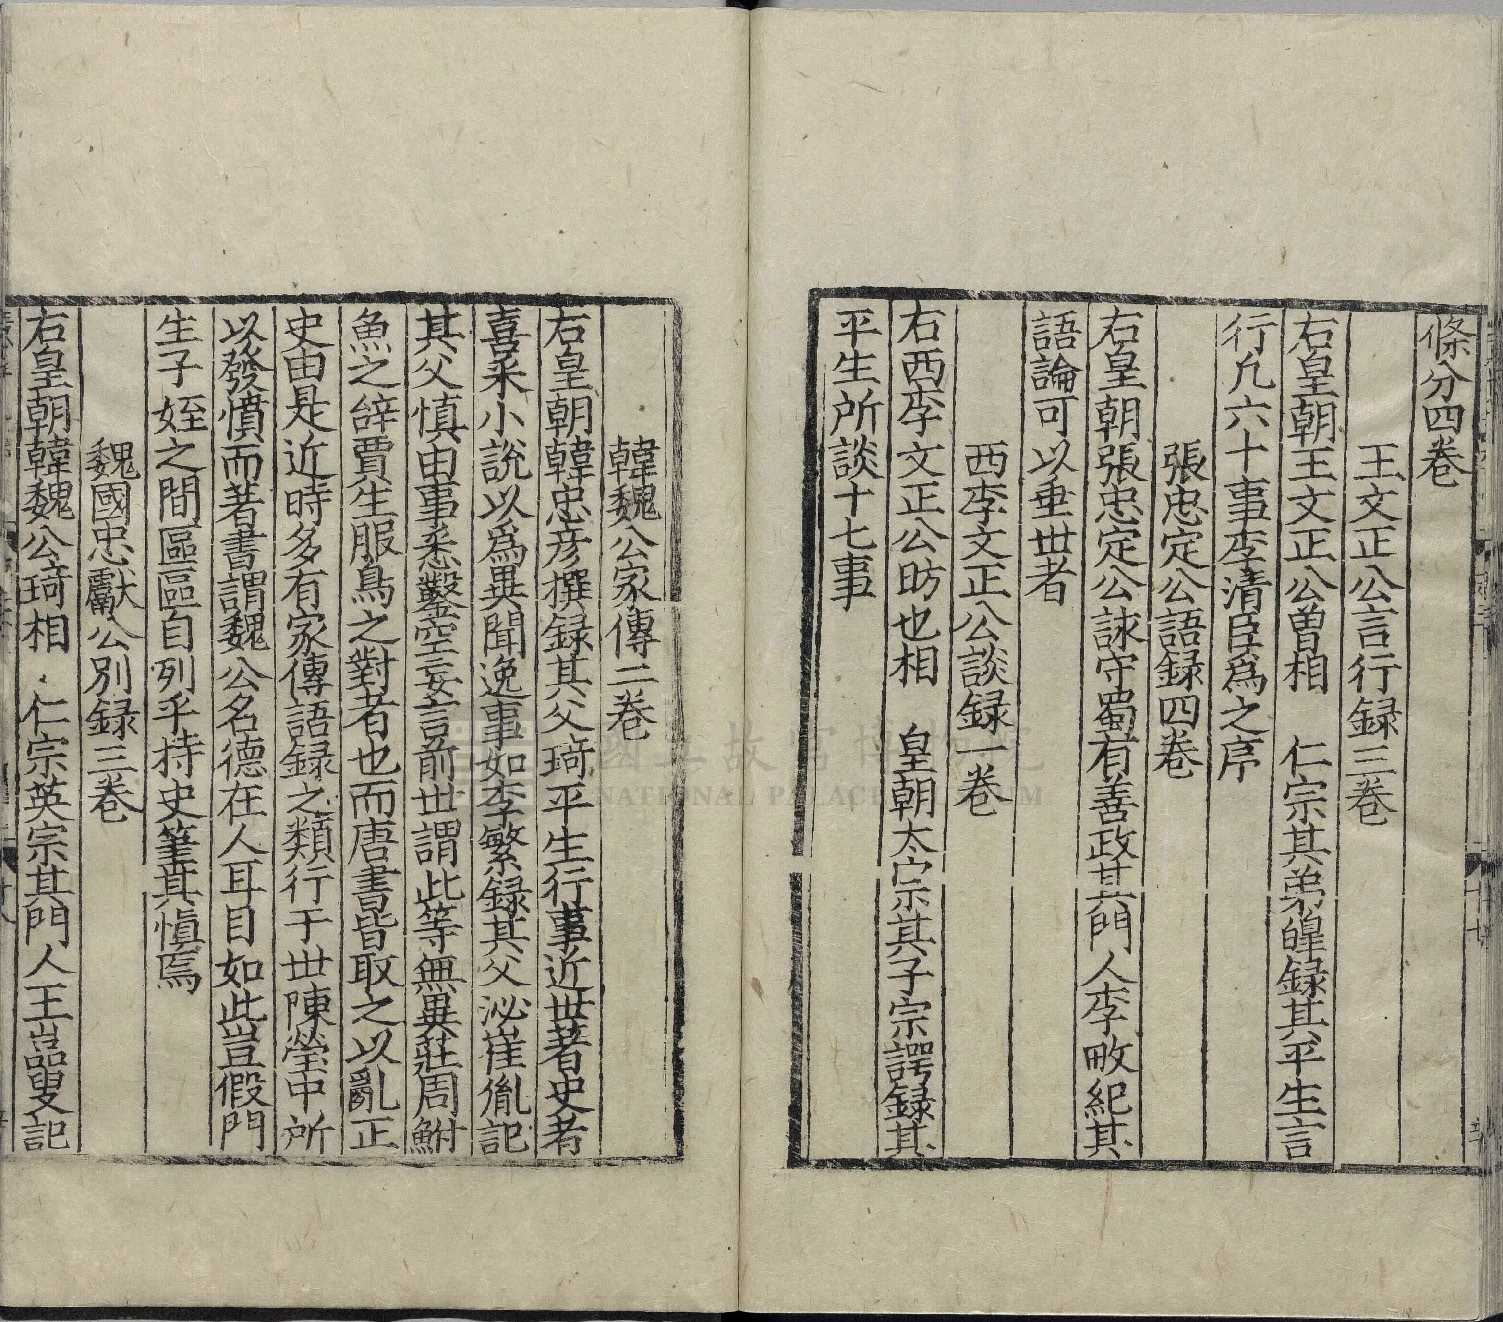 條分四卷
王文正公言行録三卷
右皇朝王文正公曽相　仁宗其弟皡録其平生言
行凡六十事李清臣爲之序
張忠定公語録四卷
右皇朝張忠定公詠守蜀有善政其門人李畋紀其
語論可以垂世者
西李文正公談録一卷
右西李文正公昉也相　皇朝太宗其子宗諤録其
平生所談十七事
韓魏公家傳二卷
右皇朝韓忠彦撰録其父琦平生行事近世著史者
喜采小說以爲異聞逸事如李繁録其父泌崔胤記
其父慎由事悉鑿空妄言前世謂此等無異莊周鮒
魚之辝賈生服鳥之對者也而唐書皆取之以亂正
史由是近時多有家傳語録之類行于世陳瑩中所
以發憤而著書謂魏公名德在人耳目如此豈假門
生子姪之間區區自列乎持史筆其慎焉
魏國忠獻公別録三卷
右皇朝韓魏公琦相　仁宗英宗其門人王嵓叟記
國立故宮博物院
NATIONAL PALACE MUSEUM